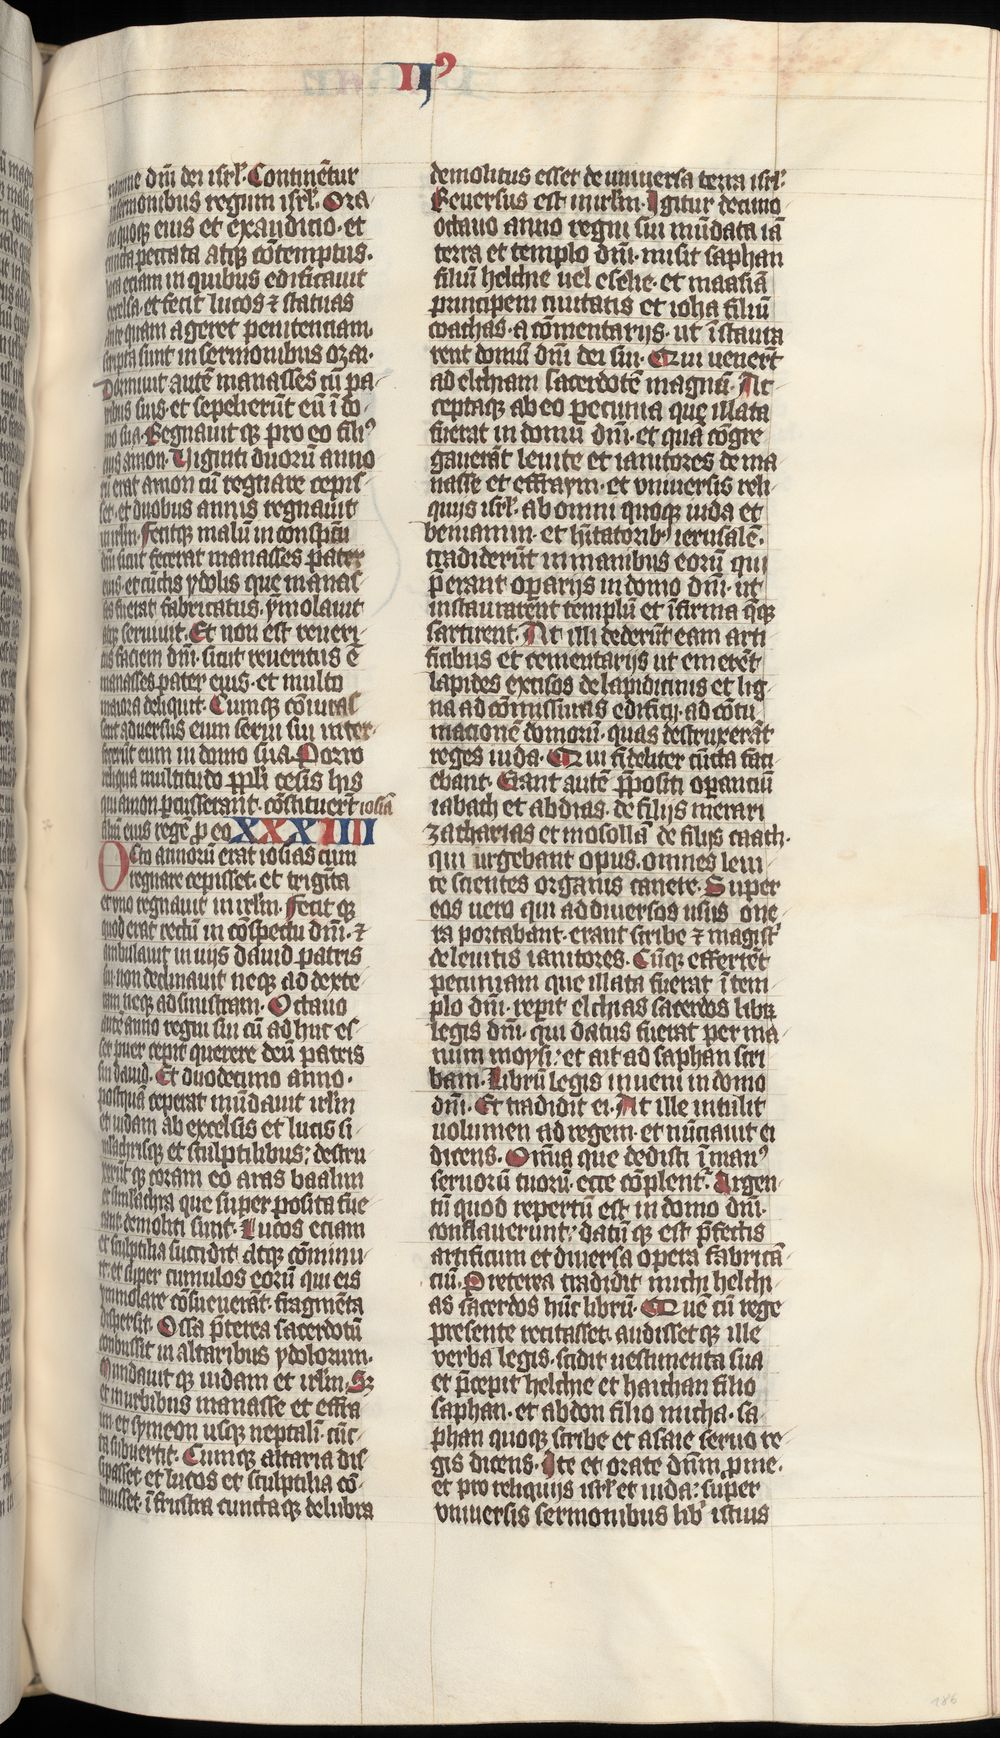 II⁹
nomine dñi dei isrl̓. Continẽtur
in sermonibus regum isrl̓. Ora
cio quoqꝫ eius et exauditio. et
cuncta peccata atqꝫ cõtemptus.
loca eciam in quibus edificauit
excelsa. et fecit lucos ⁊ statuas
ante quam ageret penitenciam.
scripta sunt in sermonibus ozai.
Dormiuit autẽ manasses cũ pa
tribus suis. et sepelierũt eũ ĩ do
mo sua. Regnauit qꝫ pro eo fili⁹
eius amon. Viginti duorũ anno
rũ erat amon cũ regnare cepis
set. et duobus annis regnauit
in irlm̃. Fecitqꝫ malũ in conspctũ
dñi sicut fecerat manasses pater
eius. et cũctis ydolis que manas
ses fuerat fabricatus. ymolauit
atqꝫ seruiuit. Et non est reueri
tus faciem dñi. sicut reueritus ẽ
manasses pater eius. et multo
maiora deliquit. Cumqꝫ cõiuras
sent aduersus eum serui sui inter
fecerũt eum in domo sua. Porro
reliqua multitudo ppl̓i cesis his
qui amon percusserant. cõstituert̃ iosiã
filiũ eius regẽ p̱ eo XXXIIII
Octo annorũ erat iosias cum
regnare cepisset. et triginta
et vno regnauit in irlm̃. Fecit qꝫ
quod erat rectũ in cõspectu dñi. ⁊
ambulauit in uijs dauid patris
sui. non declinauit neqꝫ ad dexte
ram neqꝫ ad sinistram. Octauo
autẽ anno regni sui cũ ad huc es
set puer cepit querere deũ patris
sui dauid. Et duodecimo anno.
postquã ceperat mũdauit irlm̃
et iudam ab excelsis et lucis si
mulachrisqꝫ et sculptilibus. destru
xerũt qꝫ coram eo aras baalim
et simlachra que super posita fue
rant. demoliti sunt. Lucos eciam
et sculptilia succidit. atqꝫ cõminu
it. et super tumulos eorũ qui eis
ymmolare cõsueuerãt. fragmẽta
dispersit. Ossa p̃terea sacerdotũ
conbussit in altaribus ydolorum.
Mundauit qꝫ iudam et irlm̃. Sꝫ
et in urbibus manasse et effra
im. et symeon usqꝫ neptali. cũc
ta subuertit. Cumqꝫ altaria dis
sipasset et lucos et sculptilia cõ
triuisset. ĩ frustra cunctaqꝫ delubra
demolitus esset de uniuersa terra isrl̓.
Reuersus est in irlm̃. Igitur decimo
octauo anno regni sui mũdata iã
terra et templo dñi. misit saphan
filiũ helchie uel eselie. et maasiã
principem ciuitatis et ioha filiũ
ioachas. a cõmentarijs. ut ĩstaura
rent domũ dñi dei sui. Qui uenert̃
ad elchiam sacerdotẽ magnũ. Ac
ceptaqꝫ ab eo pecunia quę illata
fuerat in domũ dñi. et quã cõgre
gauerãt leuite et ianitores de ma
nasse et effraym. et vniuersis reli
quijs isrl̓. ab omni quoqꝫ iuda et
beniamin. et hĩtatorib⁹ ierusalẽ.
tradiderũt in manibus eorũ qui
p̱erant operarijs in domo dñi. ut
instaurarent templũ et ĩfirma q̃qꝫ
sartirent. At illi dederũt eam arti
ficibus et cementarijs ut emerẽt
lapides excisos de lapidicinis et lig
na ad cõmissuras edificij. ad cõtu
mationẽ domorũ. quas destruxerãt
reges iuda. Qui fideliter cũcta faci
ebant. Erant autẽ p̱positi operanciũ
iabath et abdias. de filijs merari
zacharias et mosollã de filijs caath.
qui urgebant opus. omnes leui
te scientes organis canere. Super
eos uero qui ad diuersos usus one
ra portabant. erant scribe ⁊ magist̓
de leuitis ianitores. Cũqꝫ efferrẽt
pecuniam que illata fuerat ĩ tem
plo dñi. rep̱it elchias sacerdos librũ
legis dñi. qui datus fuerat per ma
num moysi. et ait ad saphan scri
bam. Librũ legis inueni in domo
dñi. Et tradidit ei. At ille intulit
uolumen ad regem. et nũciauit ei
dicens. Omnia que dedisti ĩ man⁹
seruorũ tuorũ. ecce cõplent̃. Argen
tũ quod repertũ est in domo dñi.
conflauerunt. datũ qꝫ est p̱fectis
artificum et diuersa opera fabricã
ciũ. Preterea tradidit michi helchi
as sacerdos hũc librũ. Quẽ cũ rege
presente recitasset. audisset qꝫ ille
verba legis. scidit uestimenta sua
et p̱cepit helchie et haichan filio
saphan. et abdon filio micha. sa
phan quoqꝫ scribe et asaie seruo re
gis dicens. Ite et orate dñm p̱ me.
et pro reliquijs isrl̓ et iuda. super
vniuersis sermonibus lib̓ istius
186